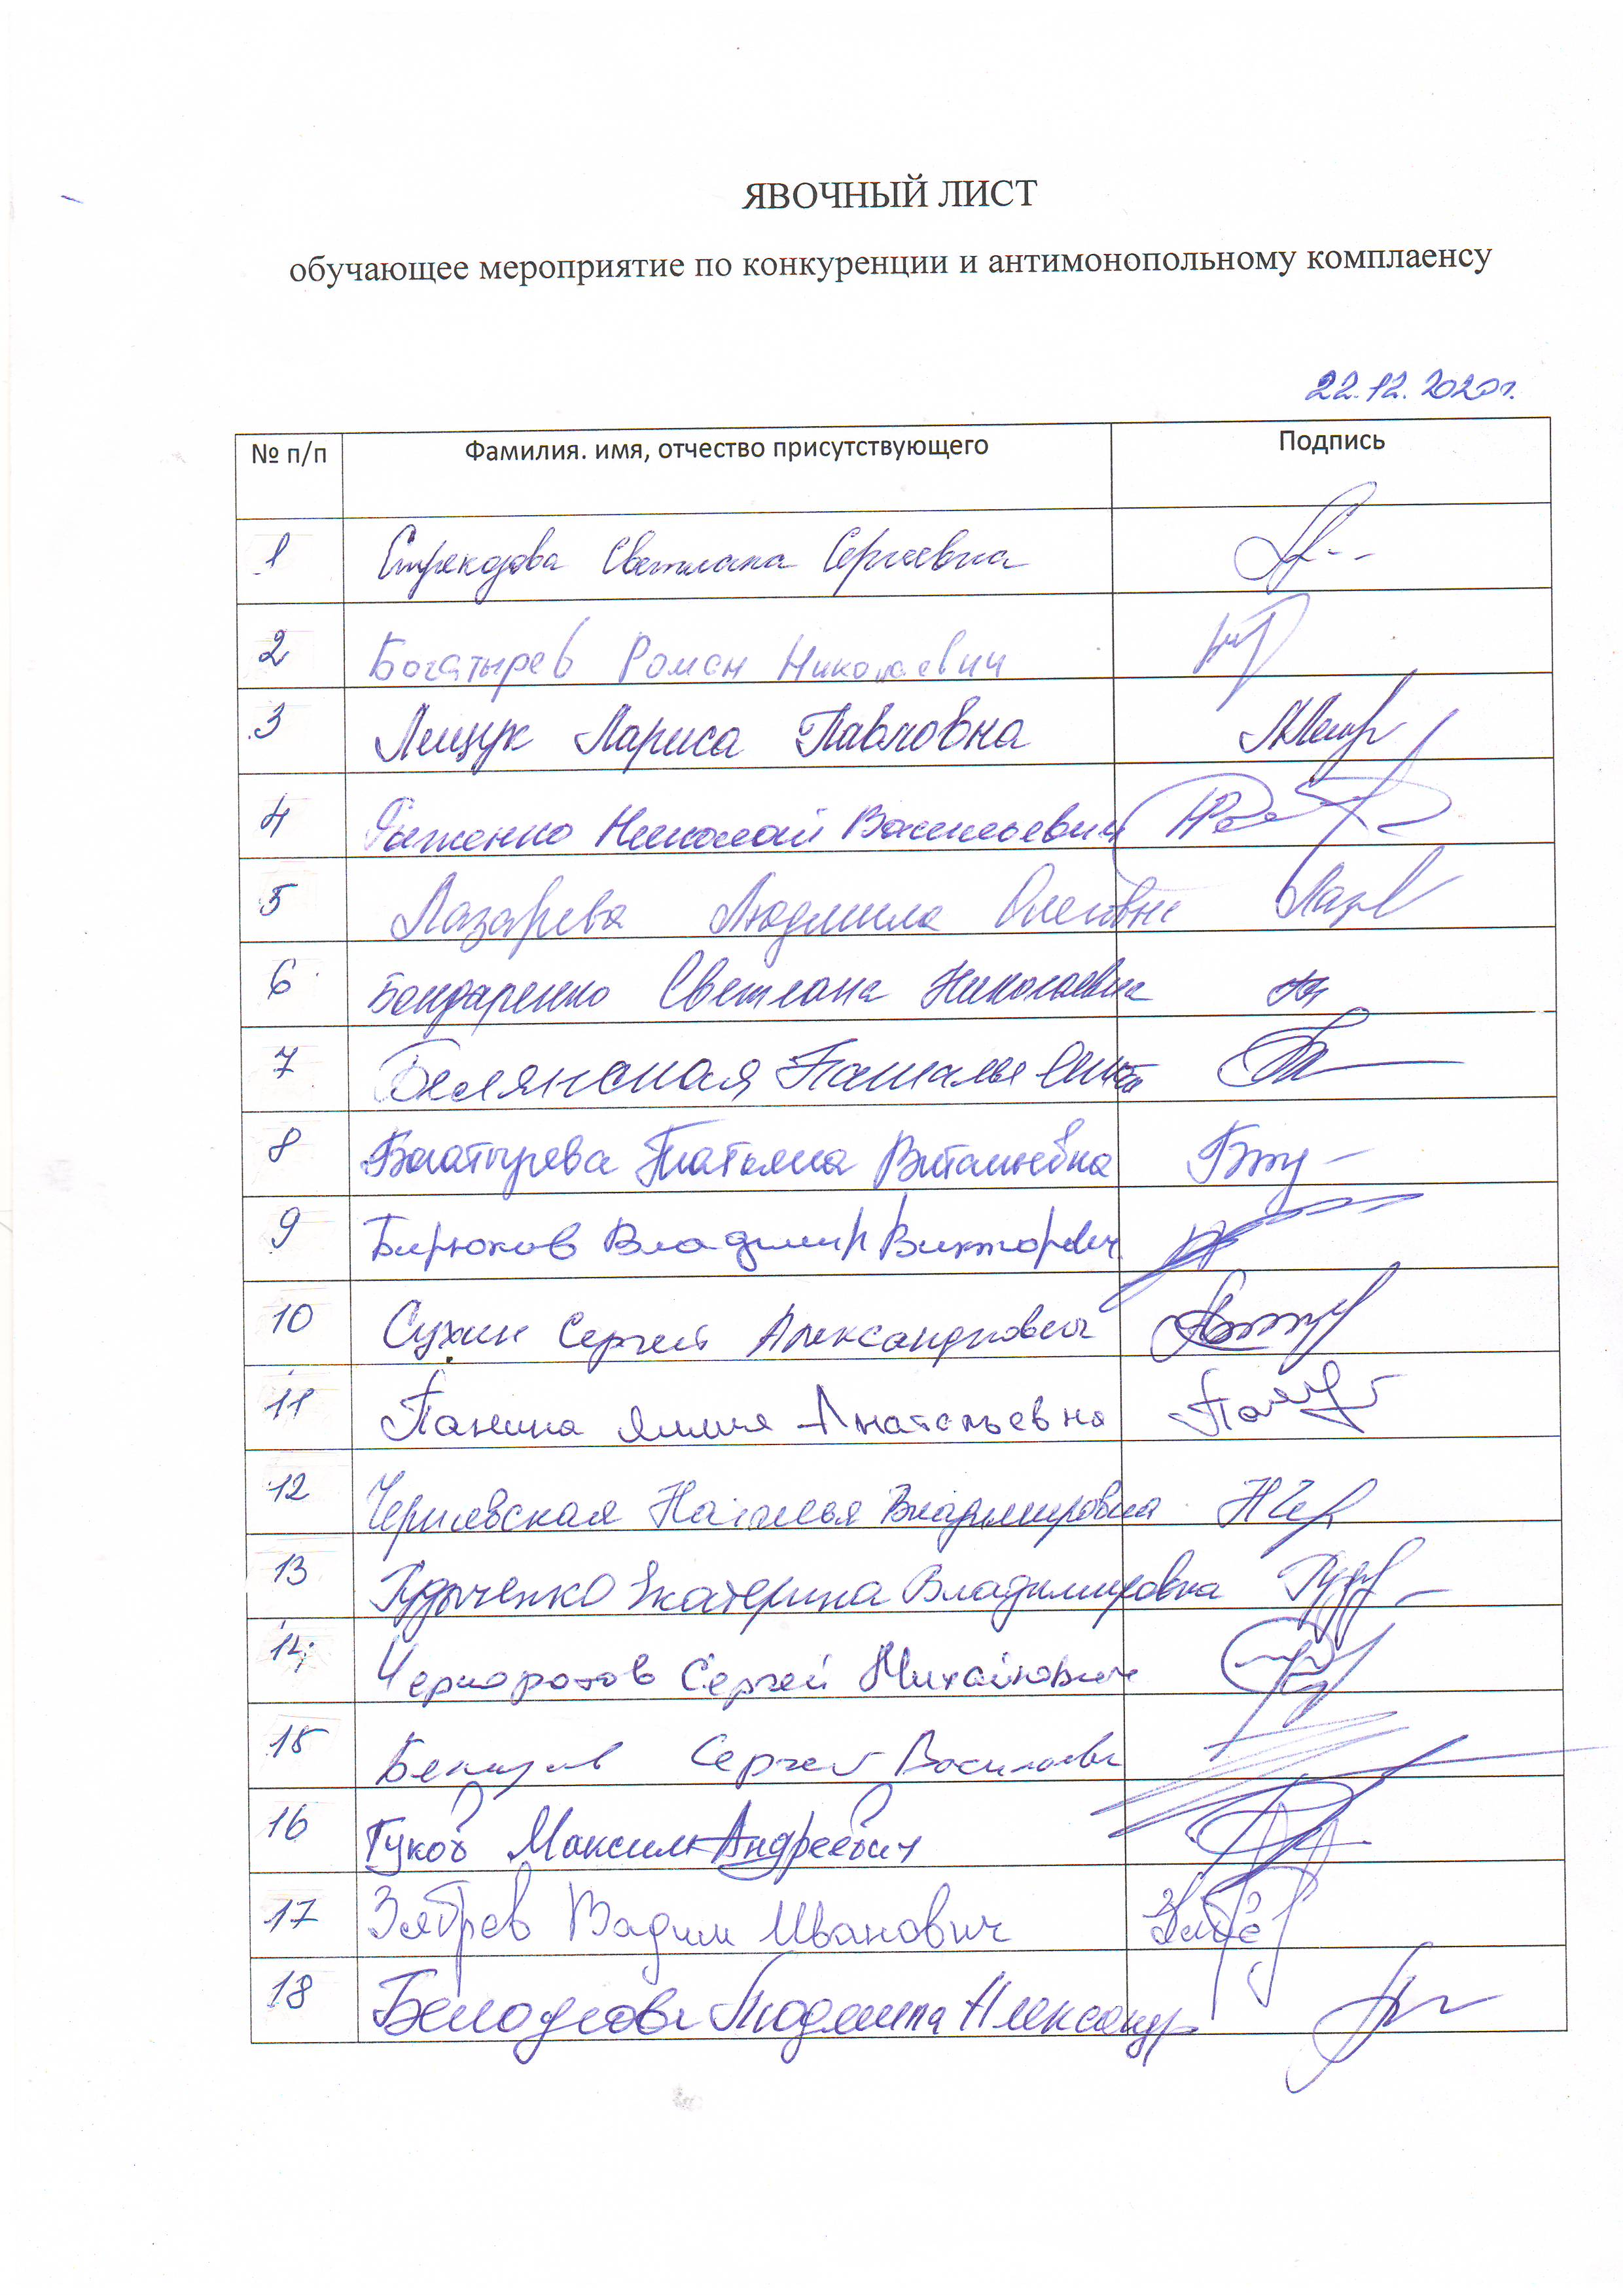 ЯВОЧНЫЙ ЛИСТ
обучающее мероприятие по конкуренции и антимонопольному комплаенсу
22.12.2020г.
№ п/п Фамилия. имя, отчество присутствующего Подпись
1 Стрекозова Светлана Сергеевна
2 Богатырев Роман Николаевич
3 Лищук Лариса Павловна
4 Николай Васильевич
5 Лазарева Людмила Олеговна
6 Бондаренко Светлана Николаевна
7 Белянская Наталья
8 Богатырева Татьяна Витальевна
9 Бирюков Владимир Викторович
10 Сухин Сергей Александрович
11 Панина Лилия Анатольевна
12 Чернявская Наталья Владимировна
13 Екатерина Владимировна
14 Черноротов Сергей Михайлович
15 Сергей Васильевич
16 Гуков Максим Андреевич
17 Зябрев Вадим Иванович
18 Людмила Александр